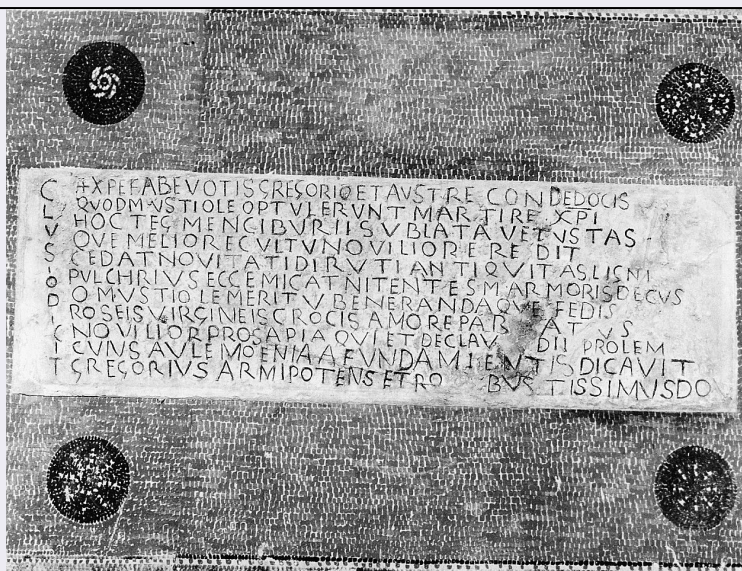 CLVSIODICIT
+XPE FABE VOTIS GREGORIO ET AVSTRE CONDE DOCIS
QVOD MVSTIOLE OPTVLERVNT MARTIRE XPI
HOC TEGMEN CIBVRII SVBLATA VETVSTAS
QVE MELIORE CVLTV NOVILIORE REDIT
CEDAT NOVITATI DIRVTI ANTIQVITAS LIGNI
PVLCHRIVS ECCE MICAT NITENTES MARMORIS DECVS
O MVSTIOLE MERITV BENERANDAQVE FEDIS
ROSEIS VIRGINEIS CROCIS AMORE PAR AT VS
NOVILIOR PROSAPIA QVI ET DE CLAV DII PROLEM
CVIVS AVLE MOENIA A FVNDAMIENTIS DICAVIT
GREGORIVS ARMIPOTENS ET RO BVSTISSIMVS DO